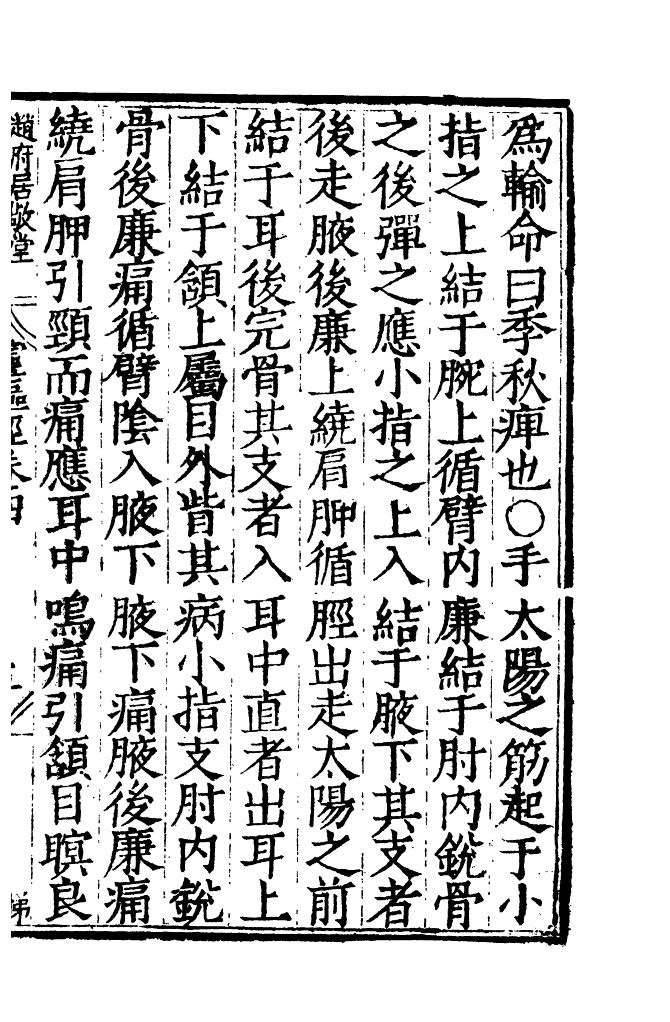 為輸命曰季秋痺也○手太陽之筋起于小
指之上結于腕上循臂内廉結于肘内銳骨
之後彈之應小指之上入結于腋下其支者
後走腋後廉上繞肩胛循脛出走太陽之前
結于耳後完骨其支者入耳中直者出耳上
下結于頷上屬目外眥其病小指支肘内銳
骨後廉痛循臂陰入腋下腋下痛腋後廉痛
繞肩胛引頸而痛應耳中鳴痛引頷目瞑良
趙府居敬堂 靈樞經卷四